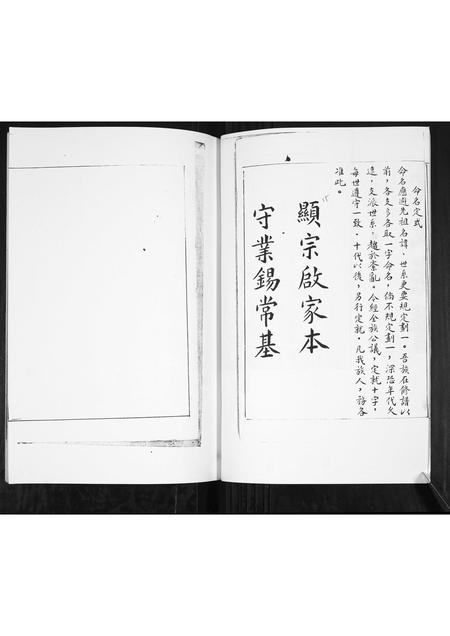 命名定式
命名應避先祖名諱、世系更要規定劃一。吾族在修譜以
前，各支多各取一字命名，倘不規定劃一，深恐年代久
遠，支派世系，趨於紊亂。今經全族公議，定就十字，
每世遵守一致。十代以後，另行定就。凡我族人，務各
准此。
顯宗啟家本
守業錫常基